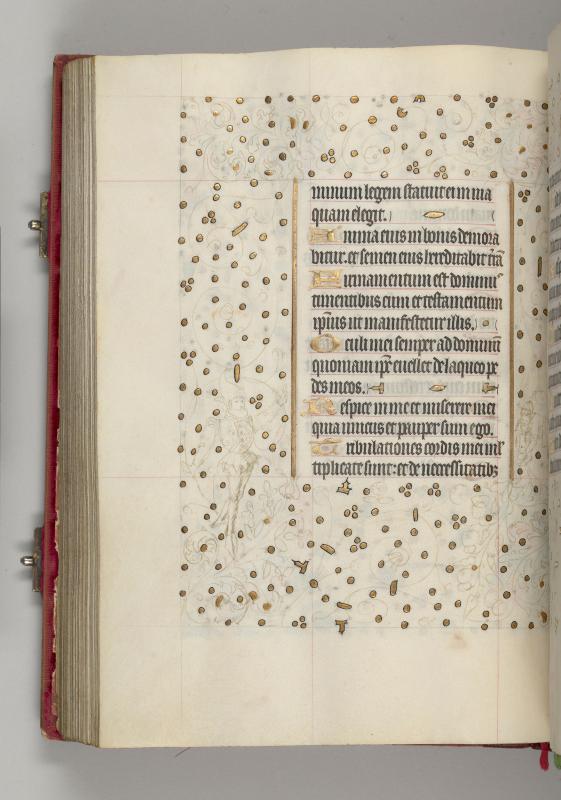 minum legem statuit ei in uia
quam elegit.
Anima eius in bonis demora
bitur. et semen eius hereditabit terrā
Firmamentum est dominus
timentibus eum et testamentum
ipsius ut manifestetur illis.
Oculi mei semper ad dominū
quoniam ipse euellet de laqueo pe
des meos.
Respice in me et miserere mei
quia unicus et pauper sum ego.
Tribulationes cordis mei mul
tiplicate sunt: et de necessitatibus